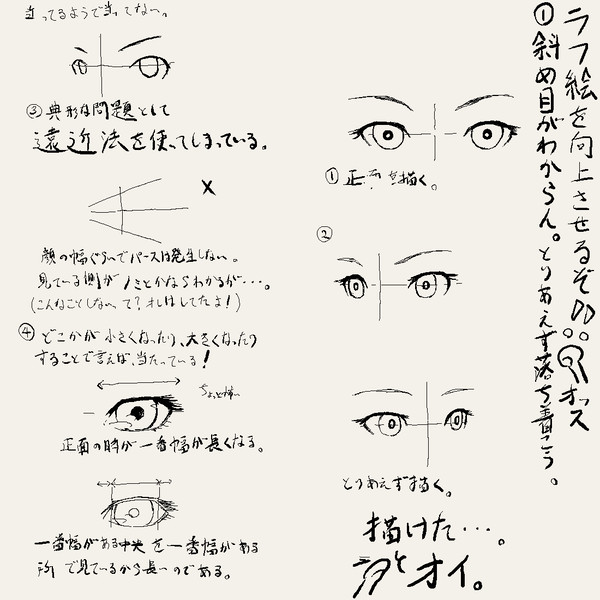 ラフ絵を向上させるぞ
オッス
①斜め目がわからん。とりあえず落ち着こう。
①正面を描く。
②
とりあえず描く。
描けた…。
オイ。
当ってるようで当ってない。
③典形な問題として
遠近法を使ってしまっている。
×
顔の幅ぐらいでパースは発生しない。
見ている側がノミとかならわかるが…。
(こんなことしないって？オレはしてたよ！)
④どこかが小さくなったり、大きくなったり
することで言えば、当たっている！
ちょっと怖い
正面の時が一番幅が長くなる。
一番幅がある中央を一番幅がある
所で見ているから長いのである。